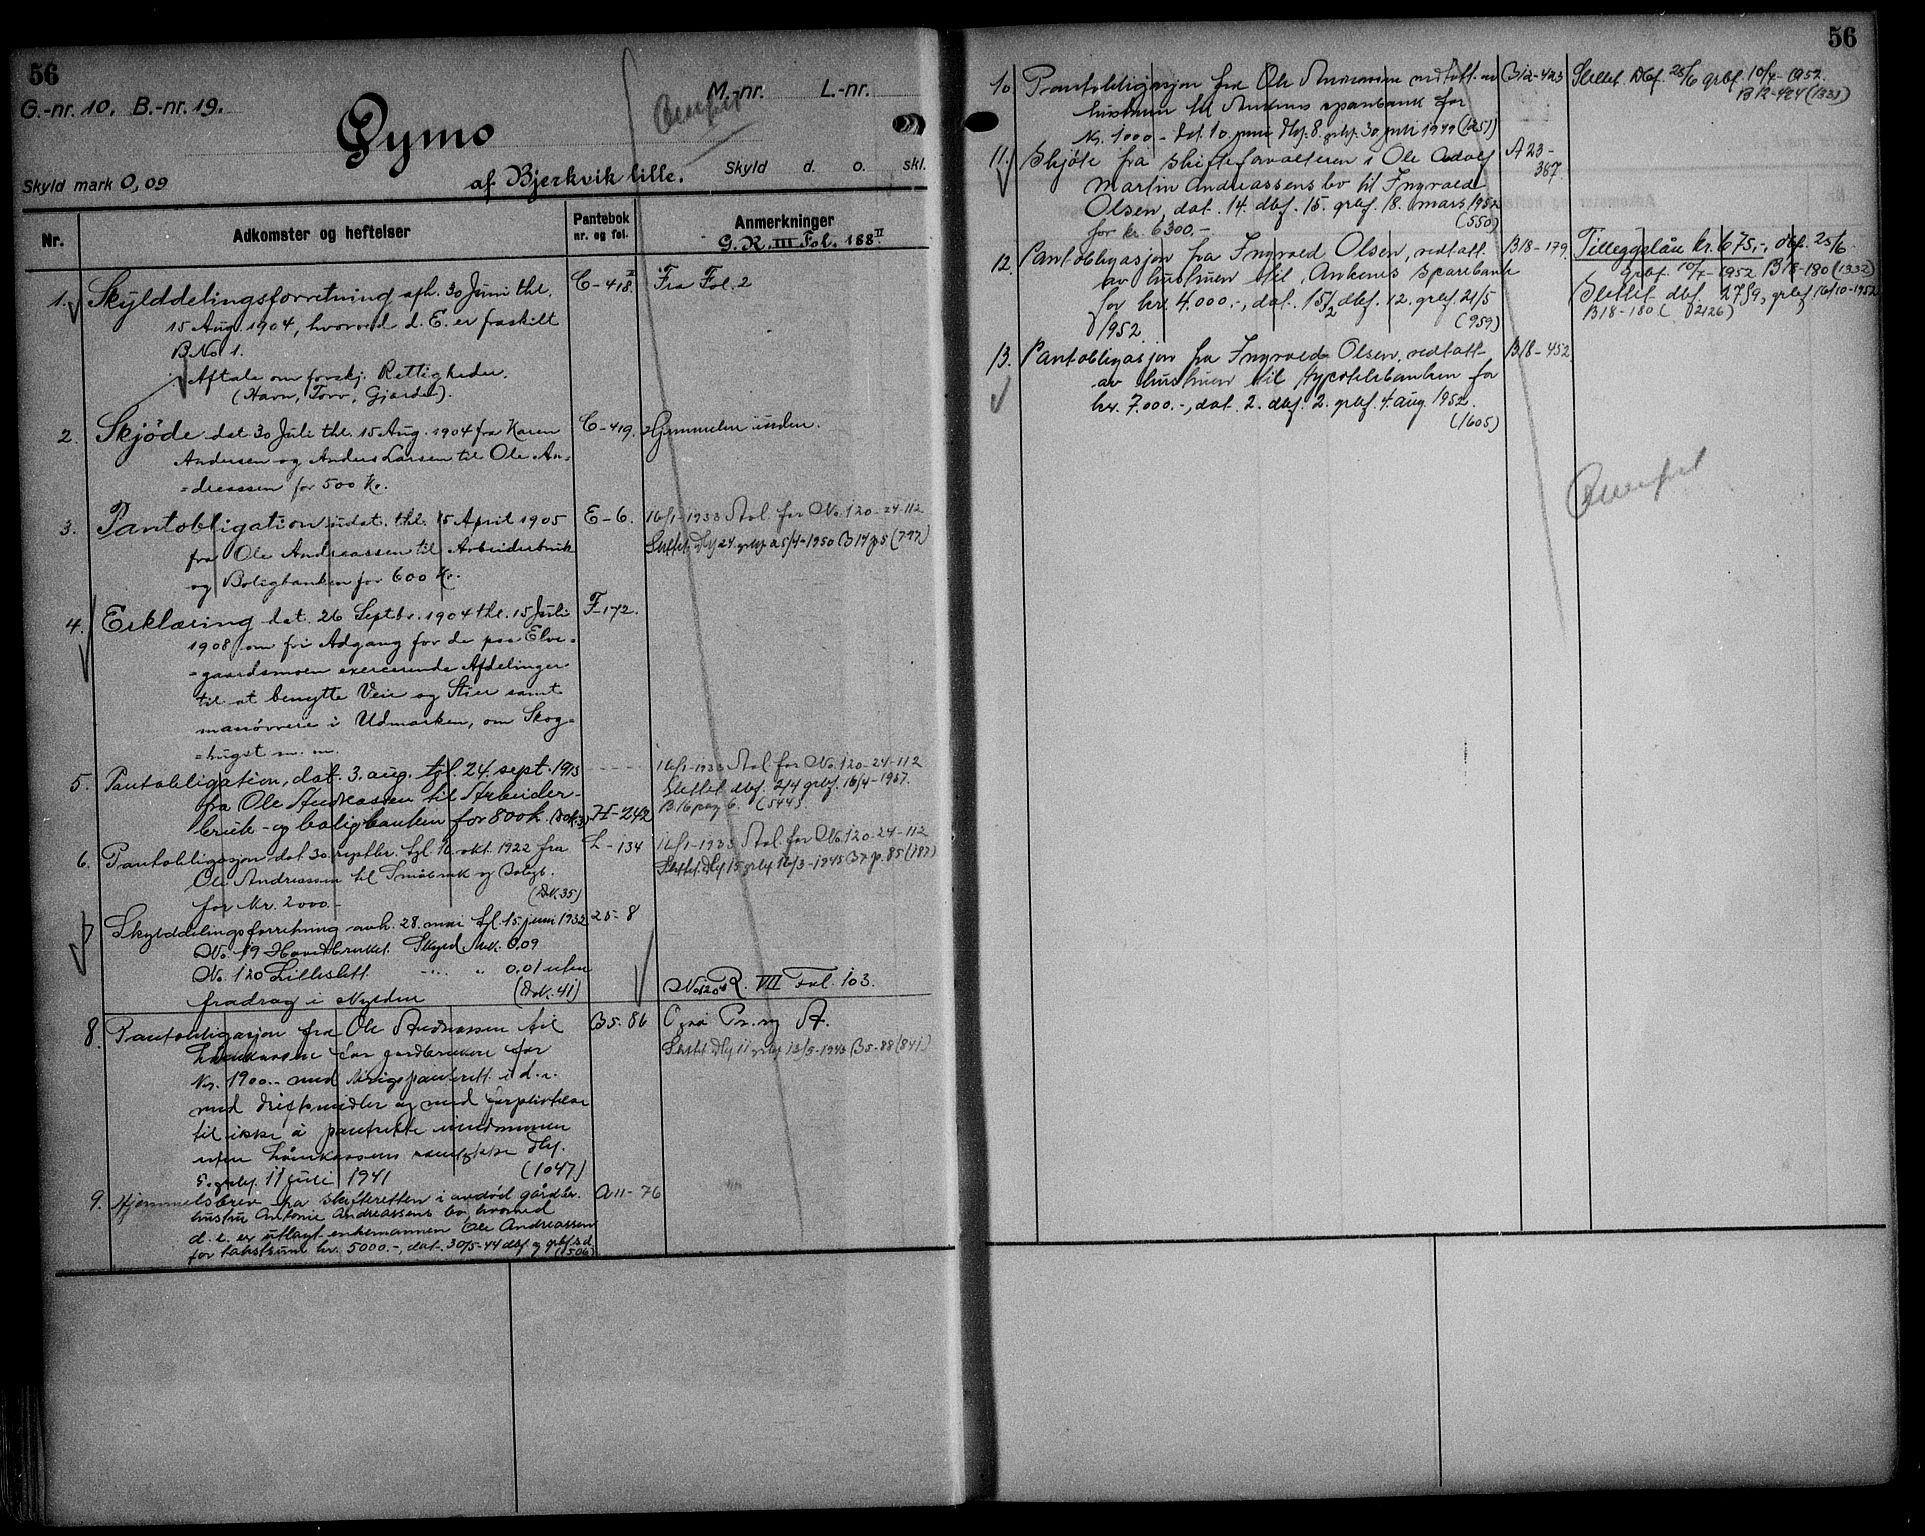 56
G.-nr. 10. B.-nr. 19.
M.-nr. L.-nr.
Øymo
Skyld mark 0,09
af Bjerkvik lille.
Skyld d. o. skl.
Nr.
Adkomster og heftelser
Pantebok
nr. og fol.
Anmerkninger
G.R. III Fol. 188 II
1. Skylddelingsforretning afh. 30 Juni thl. C-418 II Fra Fol. 2
15 Aug. 1904, hvorved d. E. er fraskilt
B No 1.
Aftale om forskj. Rettigheder.
(Havn, Torv, Gjærder).
2. Skjøde dat 30 Juli thl. 15 Aug. 1904 fra Karen C-419. Hjemmelen inden.
Andersen og Anders Larsen til Ole An=
=dreassen for 500 Kr.
3. Pantobligation udat. thl. 15 April 1905 E-6. 16/1-1933 Aol. for No. 120-24-112
fra Ole Andreassen til Arbeiderbruk Slettet Dbf 24 grbf 25/4-1950 B 14 p 5 (797)
og Boligbanken for 600 Kr.
4. Erklæring dat. 26 Septbr. 1904 thl. 15 Juli F-172.
1908 om fri Adgang for de paa Elve=
=gaardsmoen exercerende Afdelinger
til at benytte Veie og Stier samt
manøvrere i Udmarken, om Skog=
=hugst m. m.
5. Pantobligation, dat. 3. aug. tgl. 24. sept. 1913 16/1-1933 Aol for No. 120-24-112
fra Ole Andreassen til Arbeider- Slettet dbf. 2/4 grbf. 16/4-1957.
bruk- og boligbanken for 800 k. (Dok. 3) H-242 B 16 pag 6. (544).
6. Pantobligasjon dat 30 septbr. tgl. 16. okt. 1922 fra L-134 16/1-1933 Aol. for No. 120-24-112
Ole Andreassen til Småbruk og Boligb. Slettet Dbf 15 grbf 16/3-1945 B 7 p. 85 (187)
for Kr. 2000.- (Dok. 35)
7 Skylddelingsforretning avh. 28. mai tgl. 15. juni 1932 25-8
No. 19 Hovedbruket. Skyld Mk. 0,09
No. 120 Lilleslett -"- " 0,01 uten No 120 R. VII Fol. 103.
fradrag i skylden (Dok. 41)
8. Pantobligasjon fra Ole Andreassen til B5-86
Lånekassen for gardbrukere for Slettet Dbf 11 grbf 13/5-1943 B5-88 (841)
Kr. 1900.- med prigspanterett i d. e.
med driftsmidler og med forpliktelse
til ikke å pantsette eiendommen
uten Lånekassens samtykke Dbf.
grbf. 11 juli 1941 (1047)
9. Hjemmelsbrev fra skifteretten i avdød gårdbr. A11-76
hustru Antonie Andreassens bo, hvorved
d. e. er utlagt enkemannen Ole Andreassen
for takstsum kr. 5000.-, dat. 30/5-44 dbf. og grbf. s.d.
(506)
56
10 Pantobligasjon fra Ole Andreassen vedtatt av B12-423 Slettet Dbf. 25/6 grbf. 10/7-1952.
hustruen til Ankenes sparebank for B12-424 (1331)
Kr. 1000.- dat. 10. juni Dbf. 8. grbf. 30 juli 1949 (1251)
11. Skjøte fra skifteforvalteren i Ole Adolf A 23-
Martin Andreassens bo til Ingvald 387.
Olsen, dat. 14. dbf. 15. grbf. 18. mars 1952
for kr. 6300.- (550)
12. Pantobligasjon fra Ingvald Olsen, vedtatt B18-179. Tilleggslån kr. 675,-, dbf. 25/6.
av hustruen til Ankenes Sparebank grbf. 10/7-1952 B18-180 (1332)
for kr. 4.000.-, dat. 15/2 dbf. 12. grbf. 21/5 Slettet dbf. 27/9, grbf 16/10-1952
1952. (959) B18-180 (2126)
13. Pantobligasjon fra Ingvald Olsen, vedtatt B18-452
av hustruen til Hypotekbanken for
kr. 7.000.-, dat. 2. dbf. 2. grbf. 4. aug. 1952.
(1605)